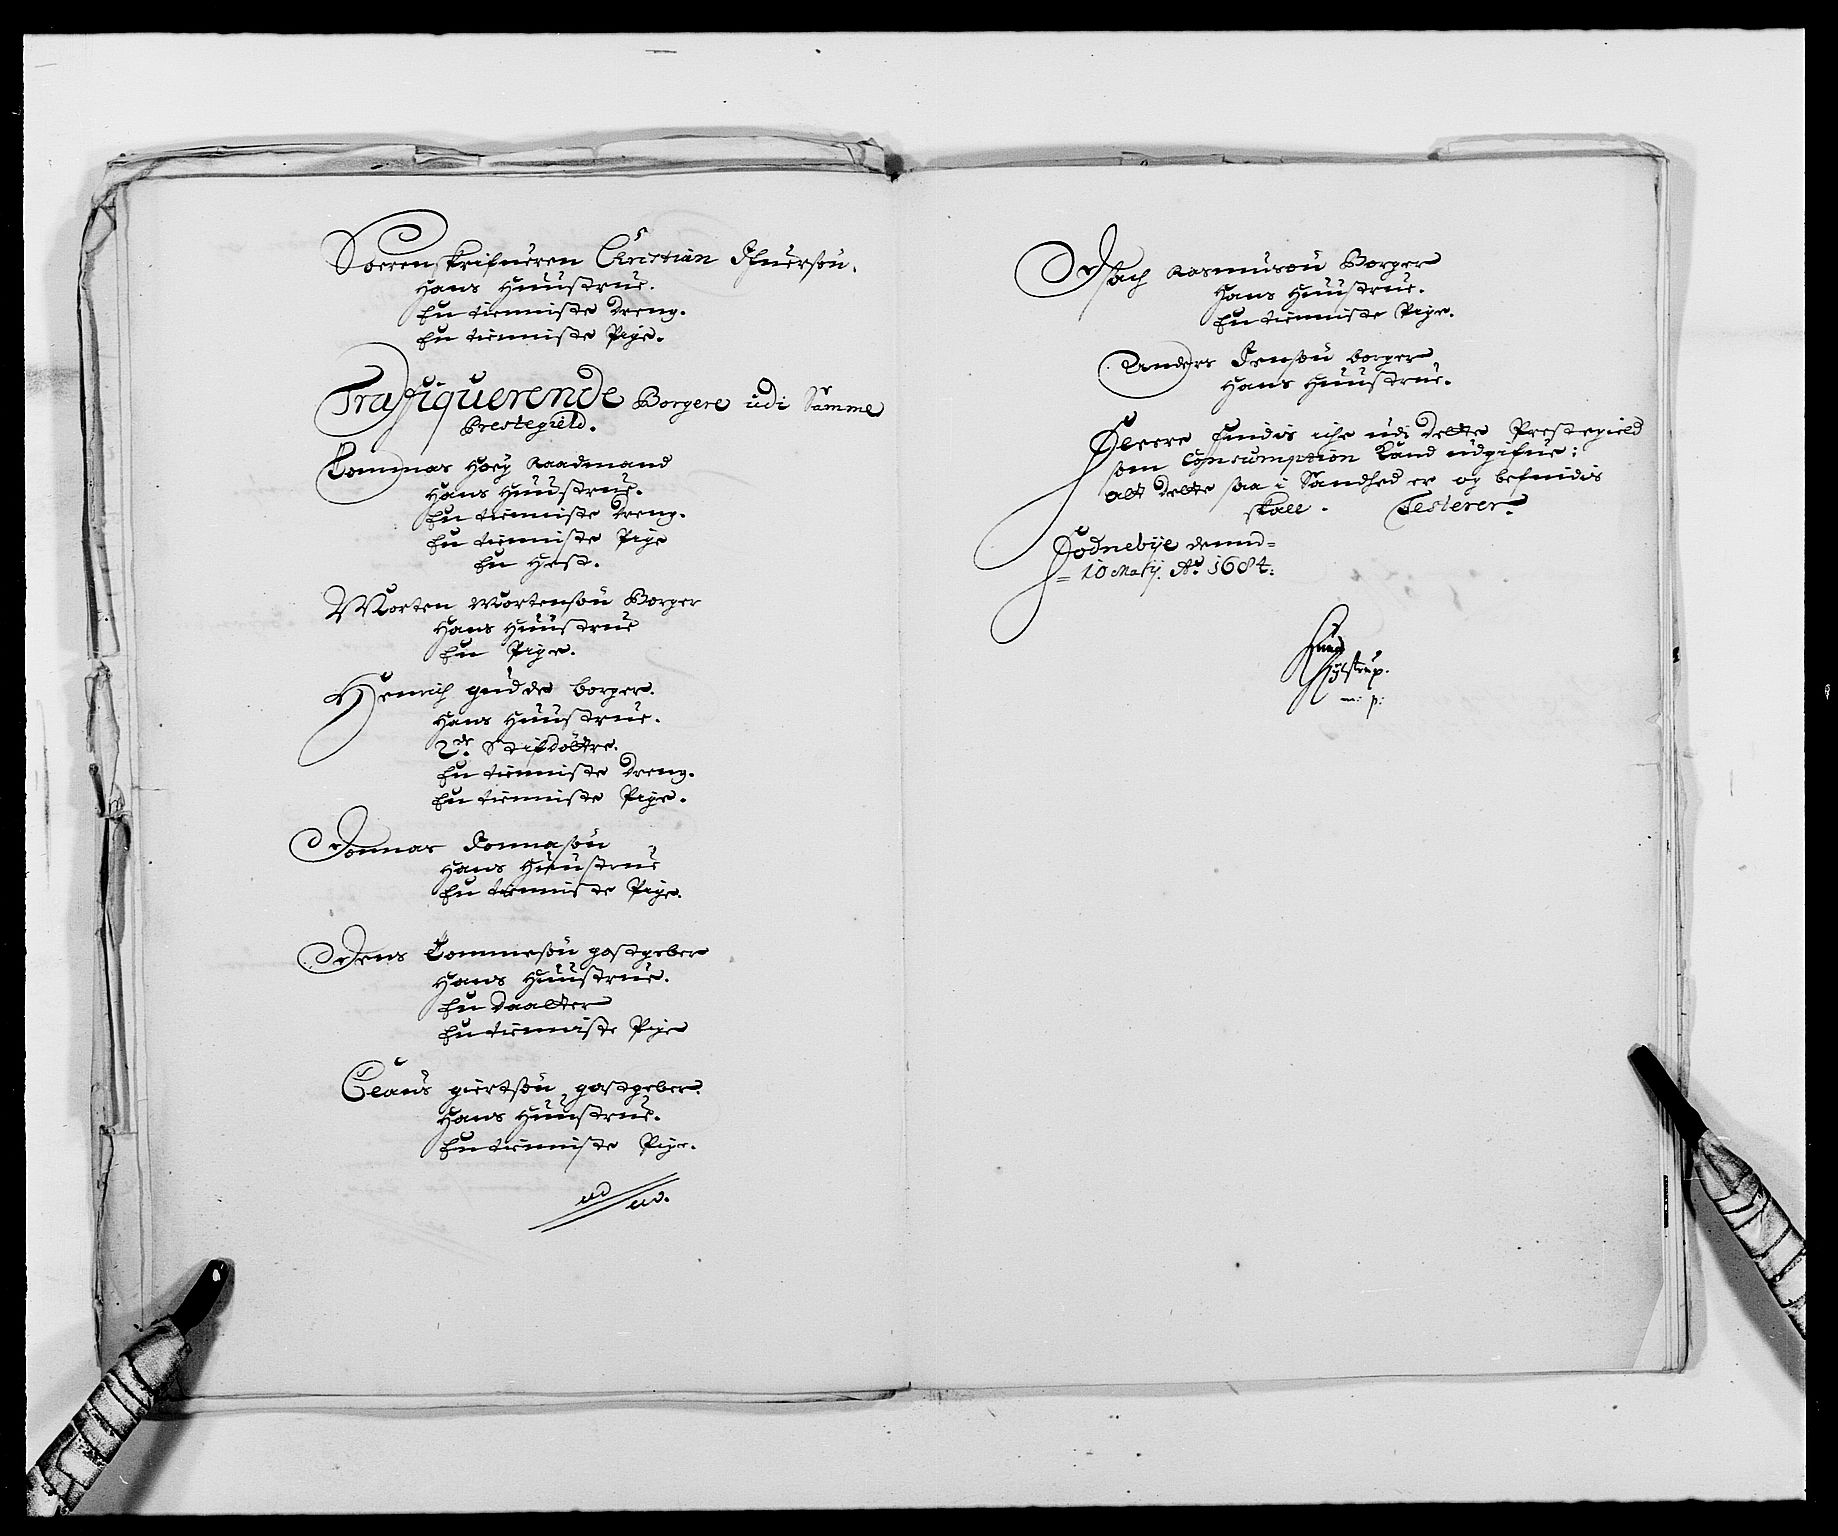 Soerenskrifueren Christian Ifuersøn.
Hans Huustrue.
En tienniste Dreng.
En tienniste Pige.
Trafiquerende Borgere udi Samme
Prestegield.
Tommas Høey Raadmand
Hans Huustrue.
En tienniste Dreng.
En tienniste Pige
En Hest.
Morten Mortensøn Borger
Hans Huustrue
En Pige.
Henrich gudde borger.
Hans Huustrue.
2de Stifdøttre.
En tienniste Dreng.
En tienniste Pige.
Jonnas Jonnasøn
Hans Huustrue
En tienniste Pige.
Jens Tommesøn gastgeber
Hans Huustrue.
En Daatter
En tienniste Pige
Claus giertsøn gastgeber.
Hans Huustrue.
En tienniste Pige.
Isach Rasmusøn Borger
Hans Huustrue.
En tienniste Pige.
Anders Jensøn borger
Hans Huustrue.
Fleere findis iche udi dette Prestegield
som Consumption kand udgifue;
alt dette saa i Sandhed er og befindis
skall. Testerer.
Fodnebÿe dennd=
= 10 Maij. Ao 1684.
m: p: